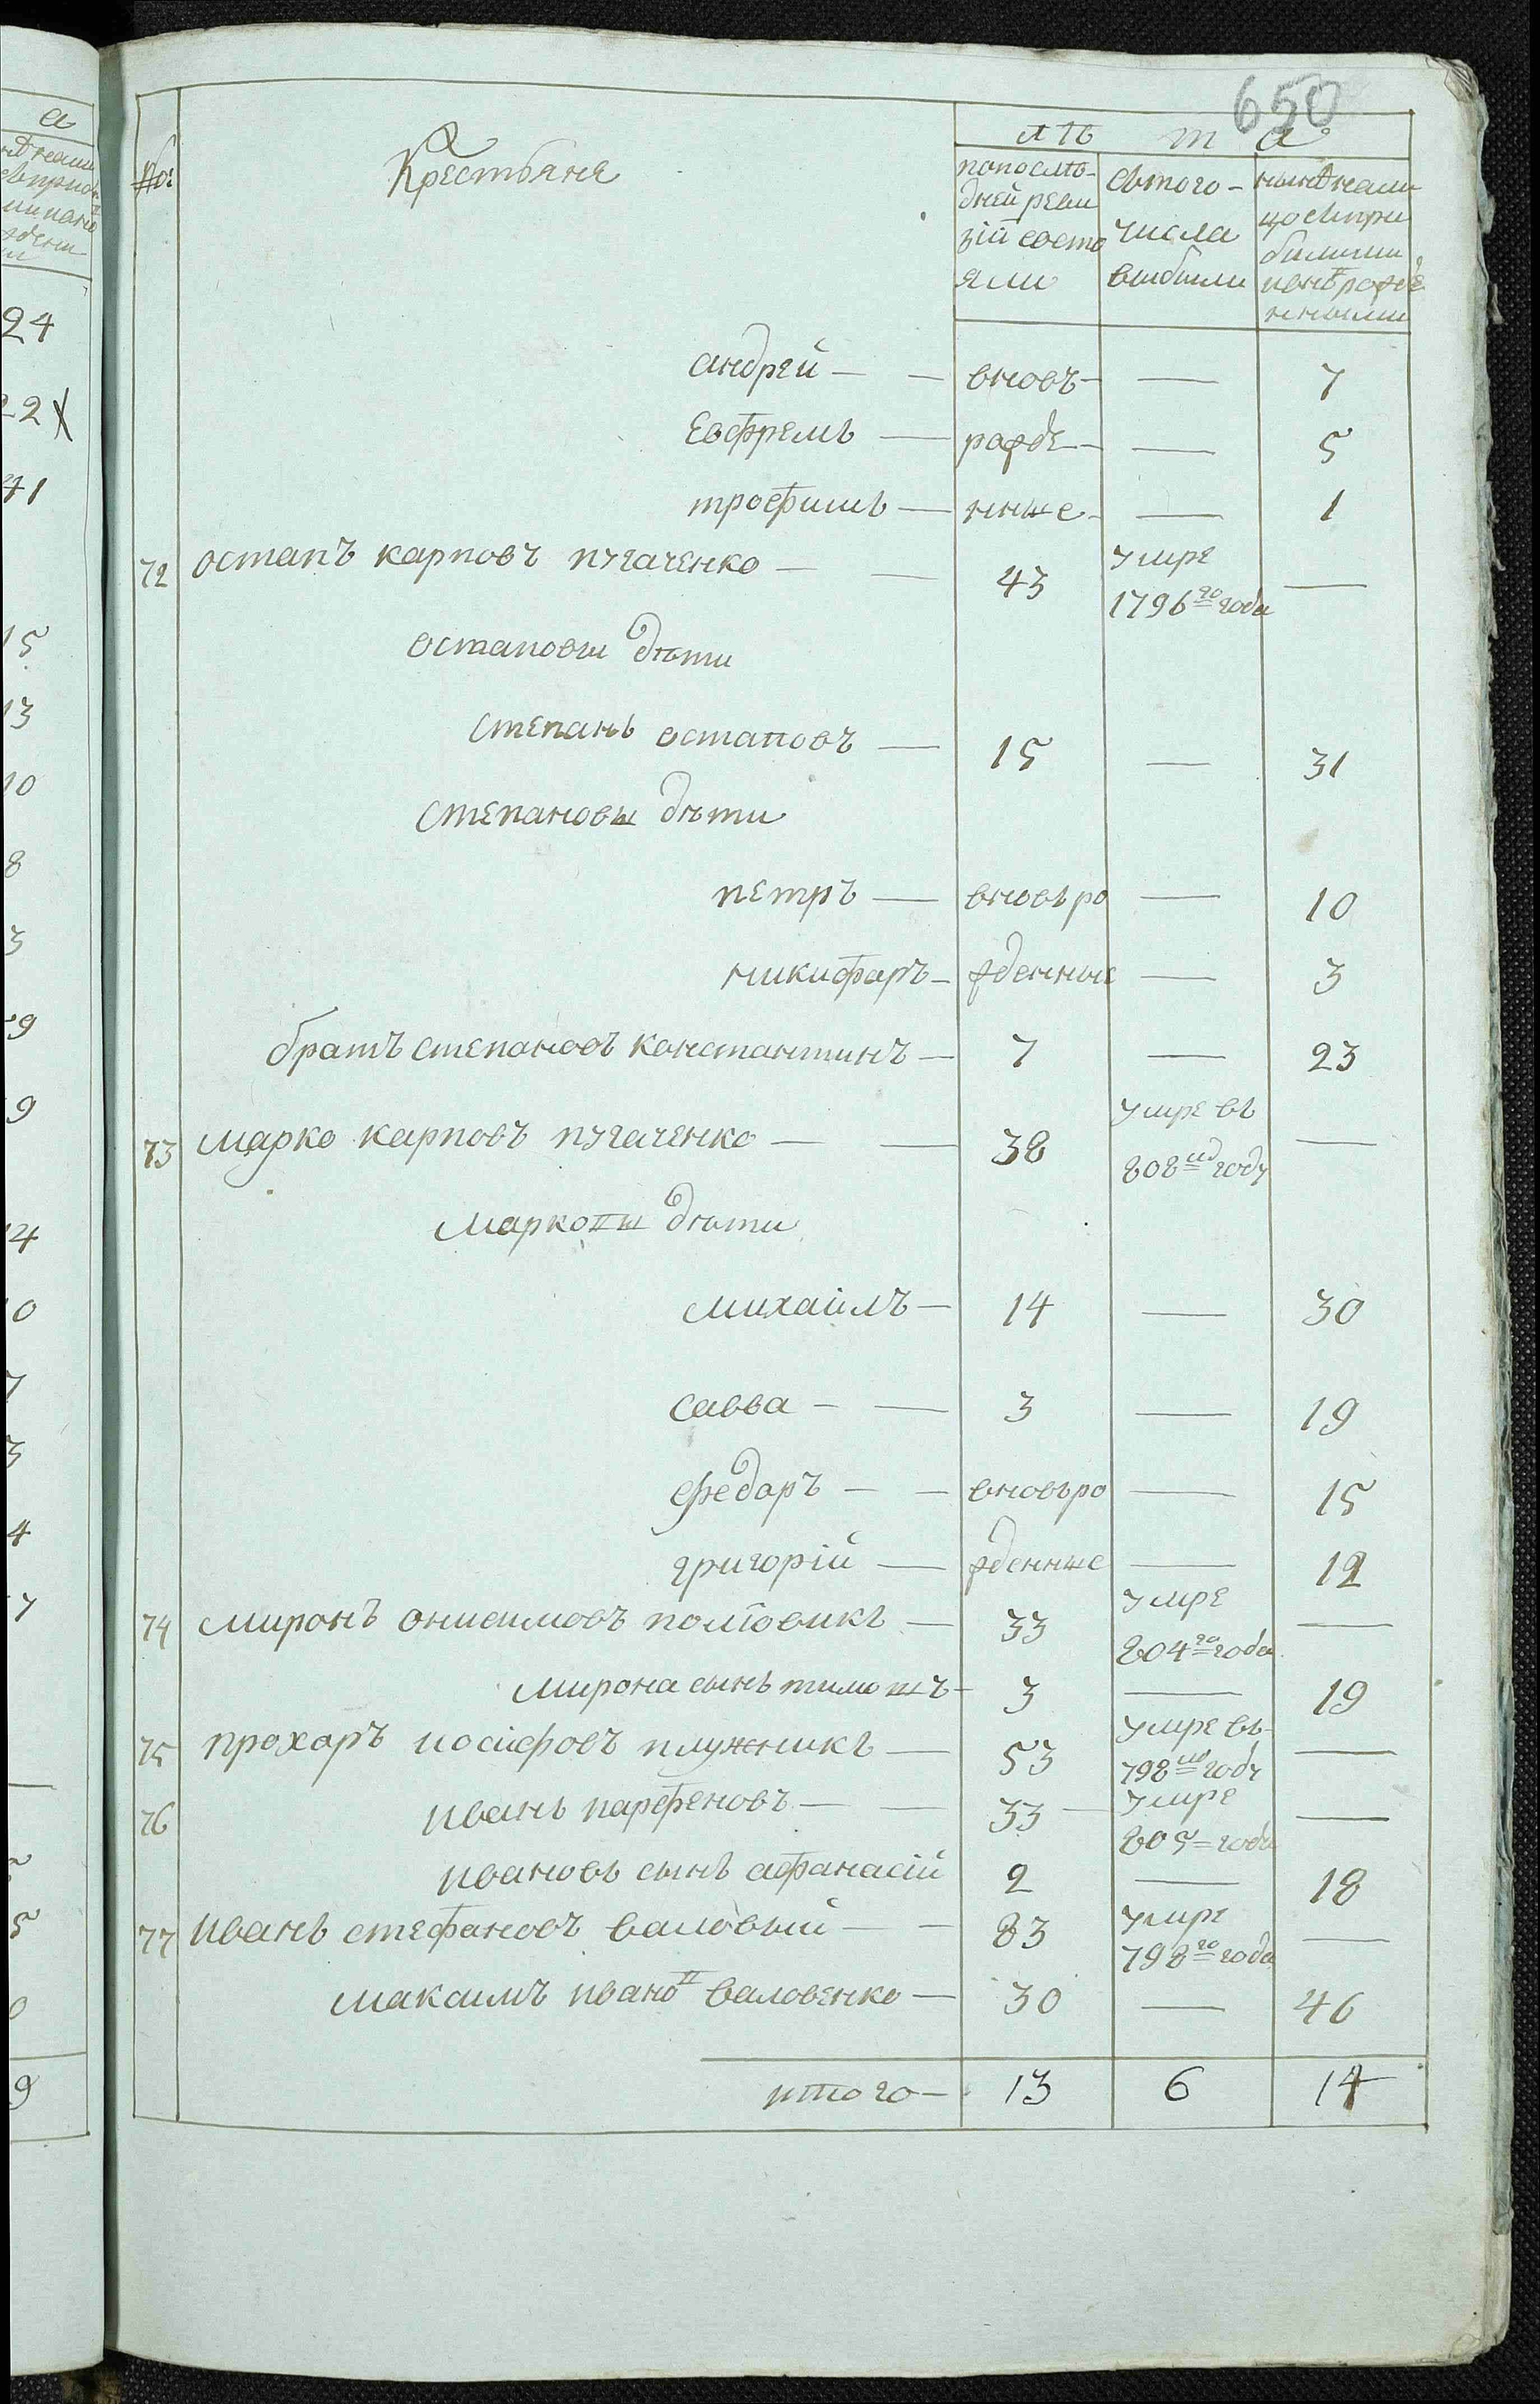 650
№
Крестьяне
лѣта
по послѣ-
дней реви
зій состо
яли
съ того-
числа
выбыли
нынѣ нали
цо съ при
былыми
и внѣ рожде
нными
андрей — — вновъ — — 7
Евфремъ — рожде — — 5
трофимъ — нные — — 1
72 остапъ карповъ пугаченко — — 43 умре 1796го года —
остаповы дѣти
степанъ остаповъ — 15 — 31
степановы дѣти
петръ — вновъ ро — 10
никифаръ — жденные — 3
братъ степановъ константинъ — 7 — 23
73 марко карповъ пугаченко — — 38 умре въ 808мъ году —
марковы дѣти
михайлъ — 14 — 30
савва — — 3 — 19
федаръ — — вновъ ро — 15
григорій — жденные — 12
74 миронъ онисимовъ полтовикъ — 33 умре 804го года —
мирона сынъ тимошъ — 3 — 19
75 прохаръ иосифовъ плужникъ — 53 умре въ 798мъ году —
76 иванъ парфеновъ — — 33 — умре 805 = года —
ивановъ сынъ афанасій 2 — 18
77 иванъ стефановъ валовый — — 83 умре 798го года —
максимъ иванов валовенко — 30 — 46
итого — 13 6 14
а
24
22
41
15
13
10
8
3
9
9
4
0
7
3
4
7
5
0
9